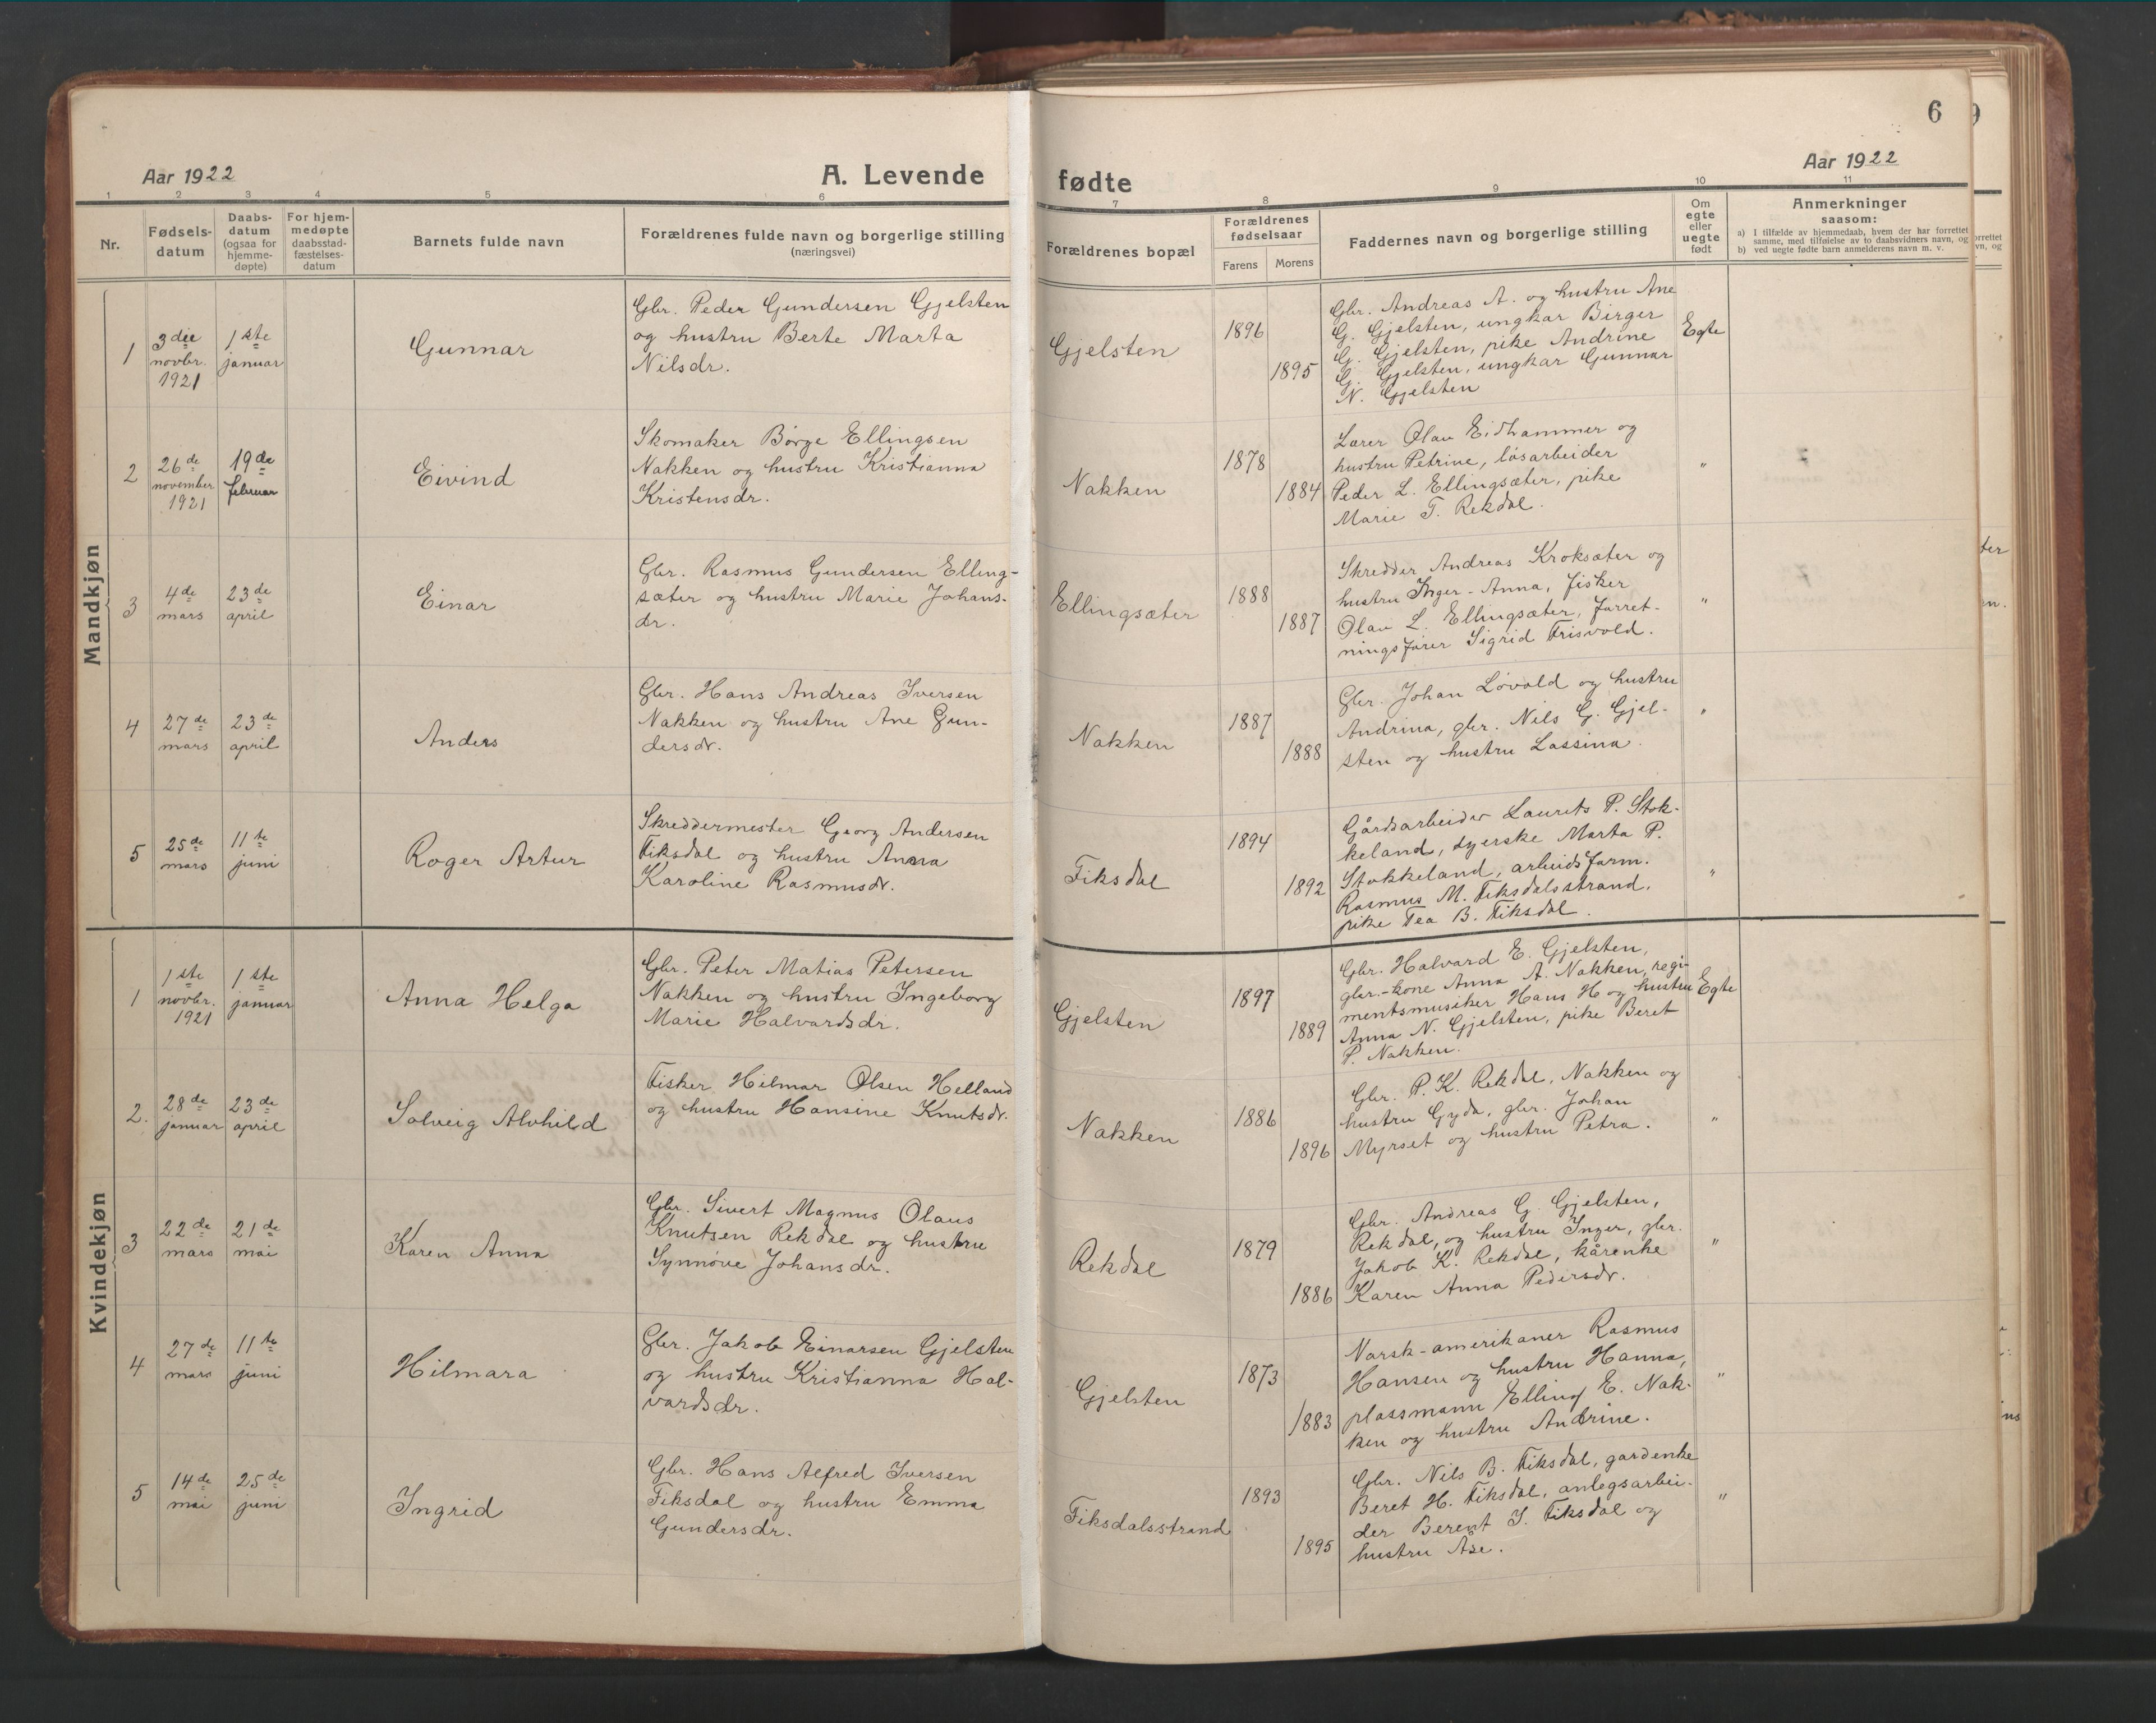 6
Aar 1922
A. Levende
fødte
Aar 1922
1 2 3 4 5 6 7 8 9 10 11
Nr.
Fødsels-
datum
Daabs-
datum
(ogsaa for
hjemme-
døpte)
For hjem-
medøpte
daabsstad-
fæstelses-
datum
Barnets fulde navn
Forældrenes fulde navn og borgerlige stilling
(næringsvei)
Forældrenes bopæl
Forældrenes
fødselsaar
Farens Morens
Faddernes navn og borgerlige stilling
Om
egte
eller
uegte
født
Anmerkninger
saasom:
a) I tilfælde av hjemmedaab, hvem der har forrettet
samme, med tilføielse av to daabsvidners navn, og
b) ved uegte fødte barn anmelderens navn m. v.
Mandkjøn
1
3die
novbr.
1921
1ste
januar
Gunnar
Gbr. Peder Gundersen Gjelsten
og hustru Berte Marta
Nilsdr.
Gjelsten
1896
1895
Gbr. Andreas A. og hustru Ane
G. Gjelsten, ungkar Birger
G. Gjelsten, pike Andrine
G. Gjelsten, ungkar Gunnar
N. Gjelsten
Egte
2
26de
november
1921
19de
februar
Eivind
Skomaker Børge Ellingsen
Nakken og hustru Kristianna
Kristensdr.
Nakken
1878
1884
Lærer Olav Eidhammer og
hustru Petrine, løsarbeider
Peder L. Ellingsæter, pike
Marie T. Rekdal.
"
3
4de
mars
23de
april
Einar
Gbr. Rasmus Gundersen Elling-
sæter og hustru Marie Johans-
dr.
Ellingsæter
1888
1887
Skredder Andreas Kroksæter og
hustru Inger-Anna, fisker
Olav L. Ellingsæter, forret-
ningsfører Sigrid Frisvold.
"
4
27de
mars
23de
april
Anders
Gbr. Hans Andreas Iversen
Nakken og hustru Ane Gun-
dersdr.
Nakken
1887
1888
Gbr. Johan Løvold og hustru
Andrina, gbr. Nils G. Gjel-
sten og hustru Lassina.
"
5
25de
mars
11te
juni
Roger Artur
Skreddermester Georg Andersen
Fiksdal og hustru Anna
Karoline Rasmusdr.
Fiksdal
1894
1892
Gårdsarbeider Laurits P. Stok-
keland, syerske Marta P.
Stokkeland, arbeidsform.
Rasmus M. Fiksdalsstrand,
pike Tea B. Fiksdal.
"
Kvindekjøn
1
1ste
novbr.
1921
1ste
januar
Anna Helga
Gbr. Peter Matias Petersen
Nakken og hustru Ingeborg
Marie Halvardsdr.
Gjelsten
1897
1889
Gbr. Halvard E. Gjelsten,
gbr.-kone Anna A. Nakken, regi-
mentsmusiker Hans H og hustru
Anna N. Gjelsten, pike Beret
P. Nakken.
Egte
2.
28de
januar
23de
april
Solveig Alvhild
Fisker Hilmar Olsen Helland
og hustru Hansine Knutsdr.
Nakken
1886
1896
Gbr. P. K. Rekdal, Nakken og
hustru Gyda, gbr. Johan
Myrset og hustru Petra.
"
3
22de
mars
21de
mai
Karen Anna
Gbr. Sivert Magnus Olaus
Knutsen Rekdal og hustru
Synnøve Johansdr.
Rekdal
1879
1886
Gbr. Andreas G. Gjelsten,
Rekdal, og hustru Inger, gbr.
Jakob K. Rekdal, kårenke
Karen Anna Pedersdr.
"
4
27de
mars
11te
juni
Hilmara
Gbr. Jakob Einarsen Gjelsten
og hustru Kristianna Hal-
vardsdr.
Gjelsten
1873
1883
Norsk-amerikaner Rasmus
Hansen og hustru Hanna,
plassmann Elling E. Nak-
ken og hustru Andrine.
"
5
14de
mai
25de
juni
Ingrid
Gbr. Hans Alfred Iversen
Fiksdal og hustru Emma
Gundersdr.
Fiksdalsstrand
1893
1895
Gbr. Nils B. Fiksdal, gardenke
Beret H. Fiksdal, anlegsarbei-
der Berent I. Fiksdal og
hustru Åse.
"